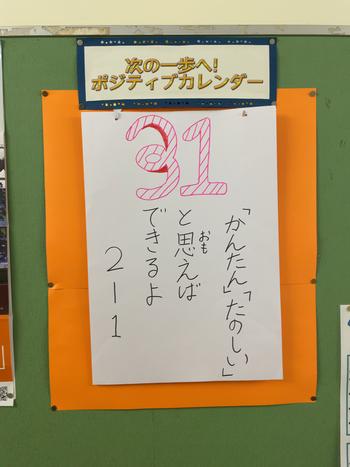 次の一歩へ!
ポジティブカレンダー
31
「かんたん」「たのしい」
と思えば
おも
できるよ
2-1